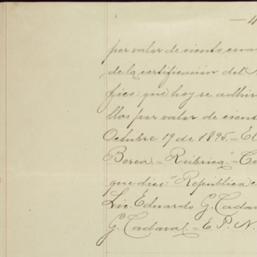 por valor de ciento cua
de la certificacion del
fico: que hoy se adhir
llos por valor de cient
Octubre 19 de 1895 - El
Berea - Rubrica - "C
que dice: "Republica
Lic. Eduardo G. Cada
G. Cadaval - E. P. N.